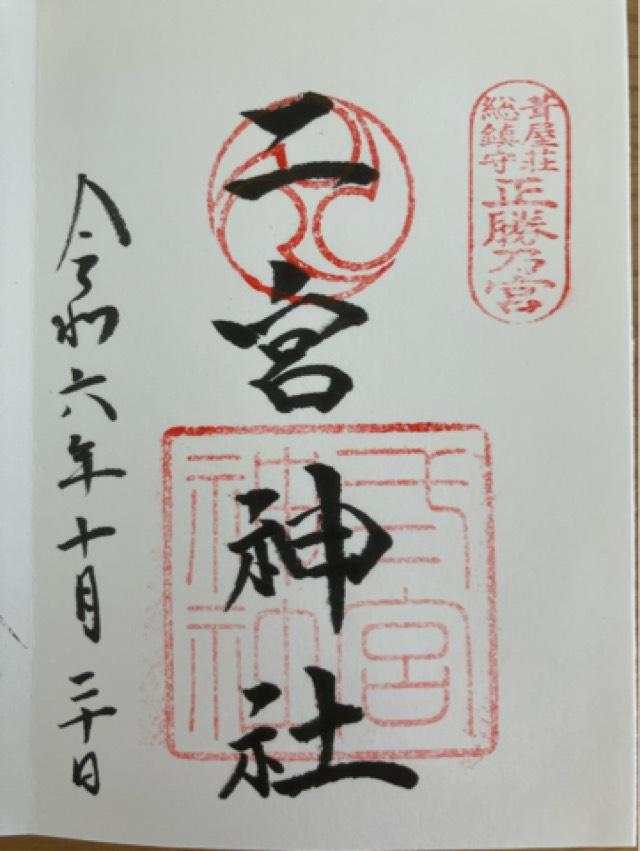 葺屋荘
総鎮守
正勝乃宮
二宮神社
宮
神社
令和六年十月二十日